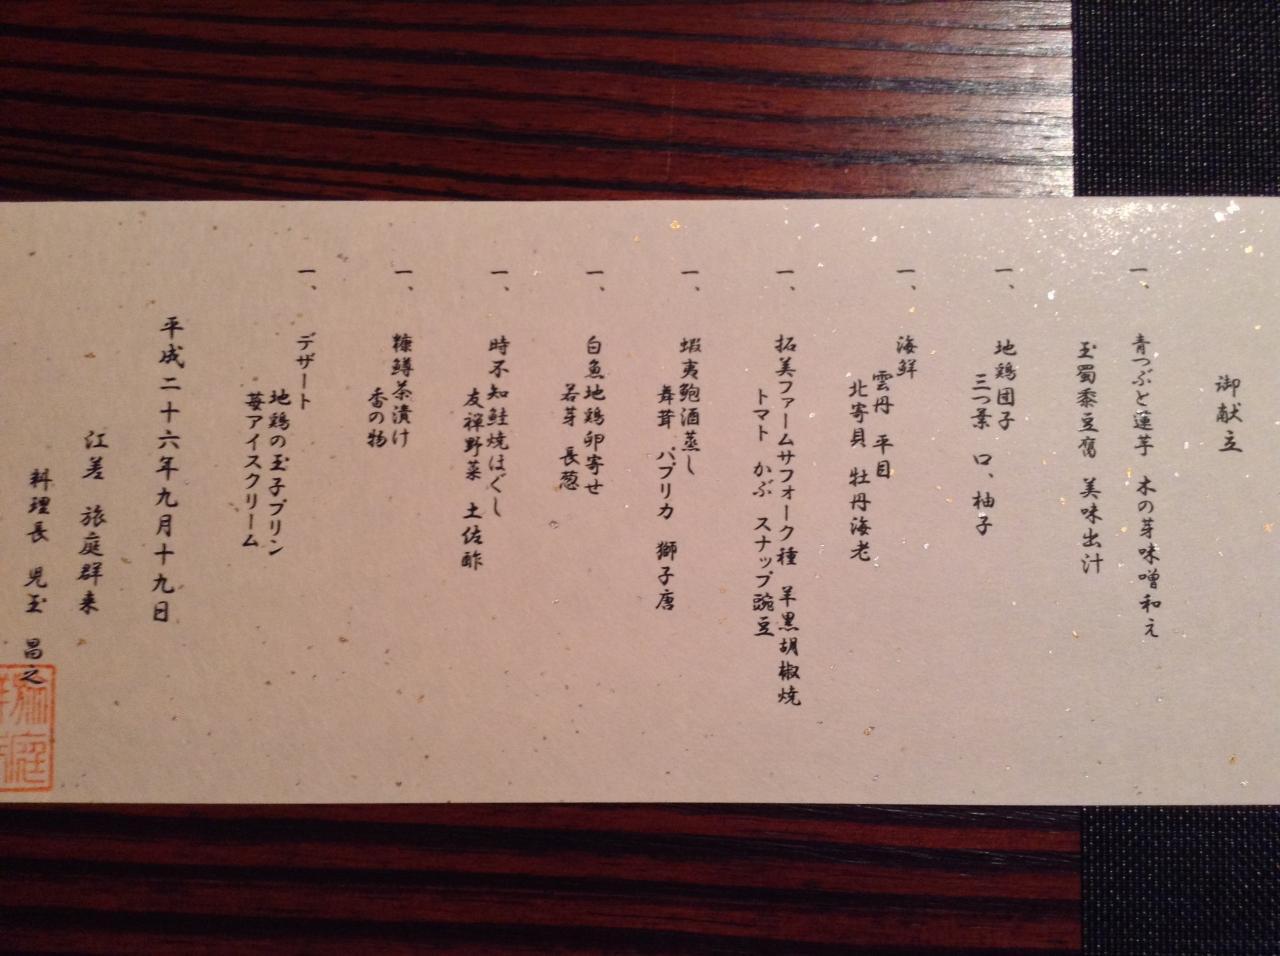 御献立
一、 青つぶと蓮芋 木の芽味噌和え
玉蜀黍豆腐 美味出汁
一、 地鶏団子
三つ葉 口、柚子
一、 海鮮
雲丹 平目
北寄貝 牡丹海老
一、 拓美ファームサフォーク種 羊黒胡椒焼
トマト かぶ スナップ豌豆
一、 蝦夷鮑酒蒸し
舞茸 パプリカ 獅子唐
一、 白魚地鶏卵寄せ
若芽 長葱
一、 時不知鮭焼ほぐし
友禅野菜 土佐酢
一、 糠鱒茶漬け
香の物
一、 デザート
地鶏の玉子プリン
苺アイスクリーム
平成二十六年九月十九日
江差 旅庭群来
料理長 児玉 昌之